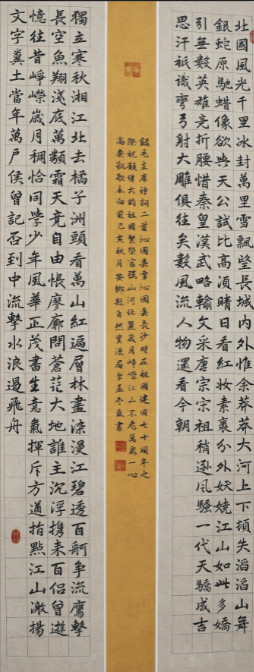 北國風光千里冰封萬里雪飄望長城內外惟余莽莽大河上下頓失滔滔山舞
銀蛇原馳蠟像欲與天公試比高須晴日看紅妝素裹分外妖嬈江山如此多嬌
引無數英雄競折腰惜秦皇漢武略輸文采唐宗宋祖稍遜風騷一代天驕成吉
思汗祇識彎弓射大雕俱往矣數風流人物還看今朝
錄毛主席詩詞二首沁園春雪沁園春長沙時在祖國建國七十周年之
際祝願偉大的祖國繁榮富強山河壯麗歲月崢嶸江山不老萬衆一心
高奏凱歌永向前己亥秋月
獨立寒秋湘江北去橘子洲頭看萬山紅遍層林盡染漫江碧透百舸爭流鷹擊
長空魚翔淺底萬類霜天競自由悵廖廓問蒼茫大地誰主沉浮攜來百侶曾遊
憶往昔崢嶸歲月稠恰同學少年風華正茂書生意氣揮斥方遒指點江山激揚
文字糞土當年萬戶侯曾記否到中流擊水浪遏飛舟